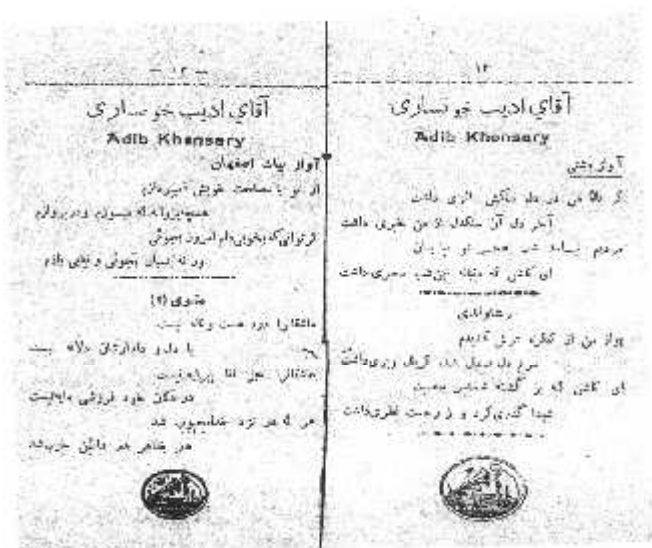 ۱۲
آقای ادیب خونساری
Adib Khonsary
آواز دشتی
گر نالهٔ من در دل سنگش اثری داشت
آخر دل آن سنگدل از من خبری داشت
مردیم نیامد شب هجر تو بپایان
ای کاش که دنباله این شب سحری داشت
من از کنگره عرش
مرغ دل بسمل شده گر بال و پری داشت
ای کاش که بر کشته شمشیر محبت
شیدا گذری کرد و ز رحمت نظری داشت
— ۱۳ —
آقای ادیب خونساری
Adib Khansary
آواز بیات اصفهان
از تو با مصلحت خویش نمیپردازم
همچو پروانه که میسوزم و در پروازم
گر توانی که بجوئی دلم امروز بجوئی
ورنه بسیار بجوئی و نیابی بازم
مثنوی (۲)
عاشقانرا نیست
با دل و دلدارشان نیست
عاشقانرا
در دکان خود فروشی مایه نیست
هر که در نزد خدا محبوب شد
هم بظاهر هم بباطن خوب شد